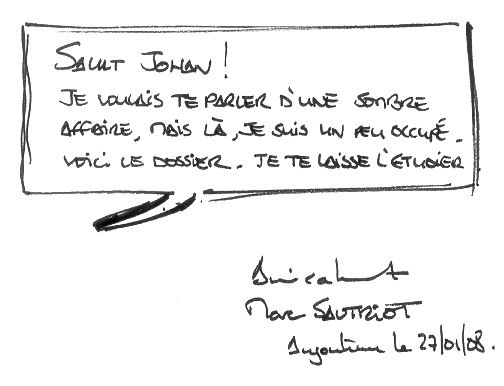 SALUT JOHAN !
JE VOULAIS TE PARLER D'UNE SOMBRE
AFFAIRE, MAIS LÀ, JE SUIS UN PEU OCCUPÉ.
VOICI LE DOSSIER. JE TE LAISSE L'ÉTUDIER
Amicalement
Marc SAUTRIOT
Angoulême le 27/01/08.